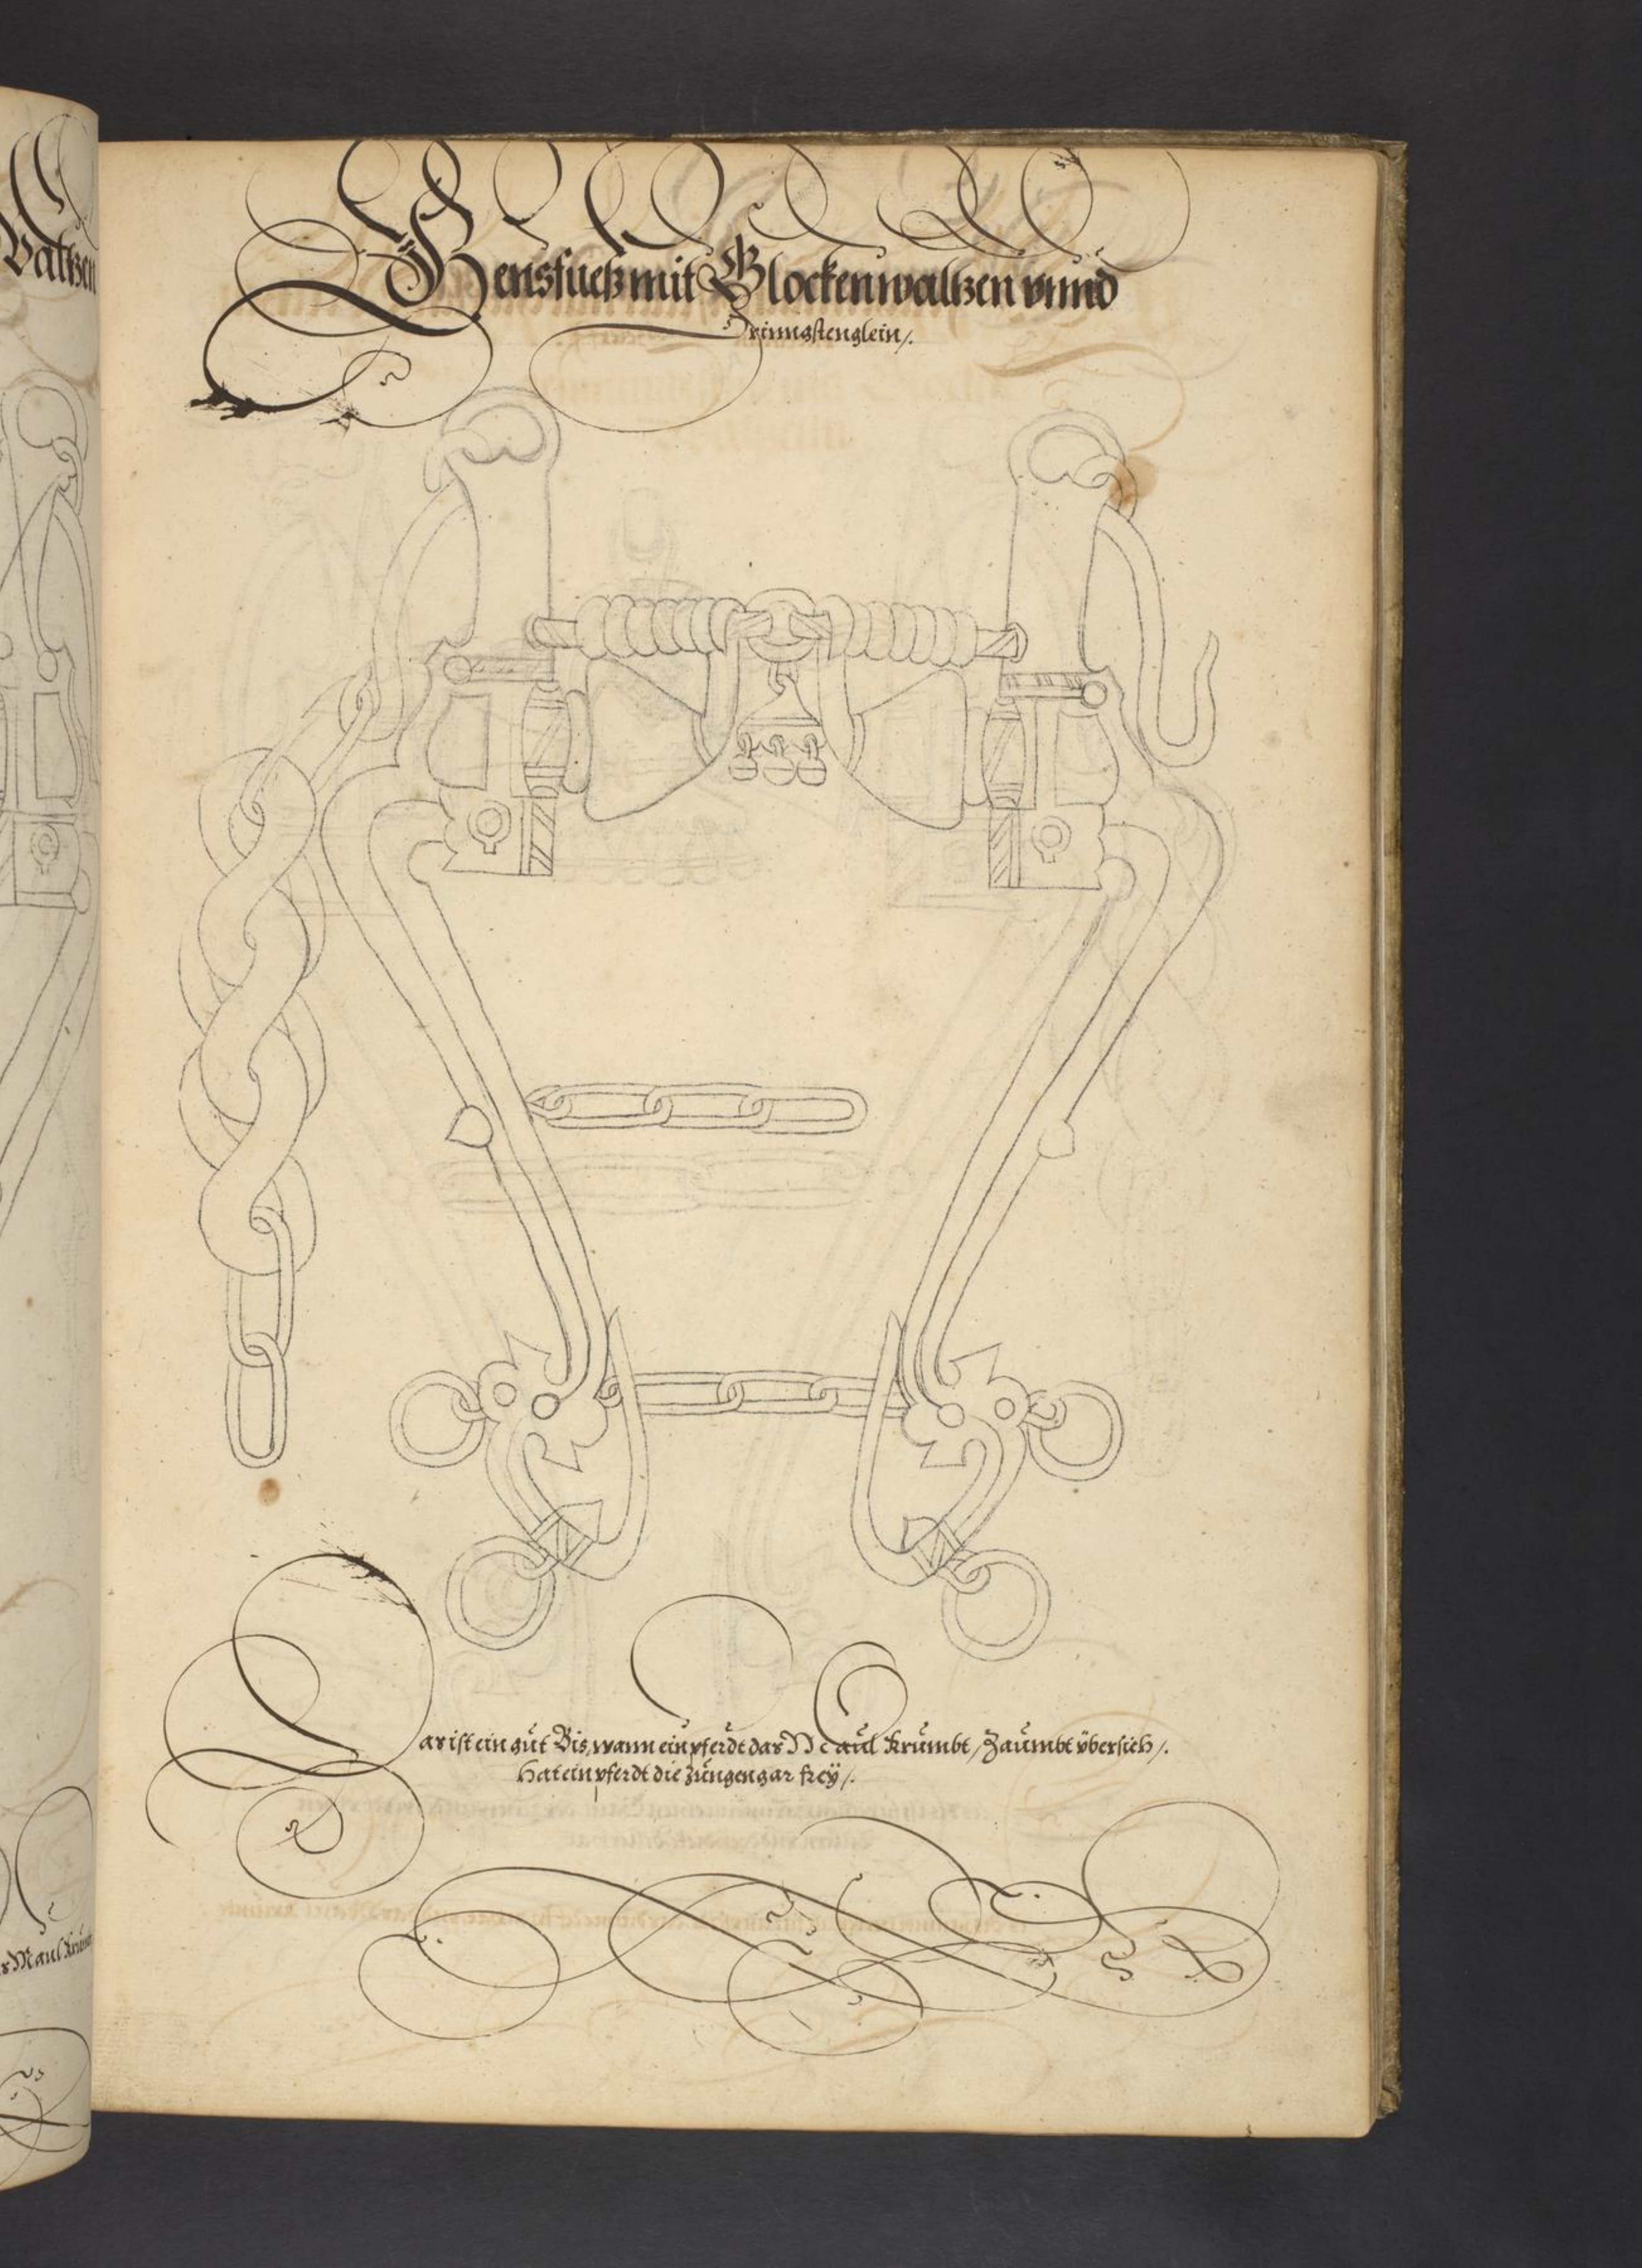 Valtzen
Gensfueß mit Glockenwaltzen vnnd
Trinngstenglein /.
Das ist ein gut Bis, wann ein pferdt das Maul krumbt, Zaumbt vbersich /.
Hat ein pferdt die Zungen gar freÿ /.
s Maul